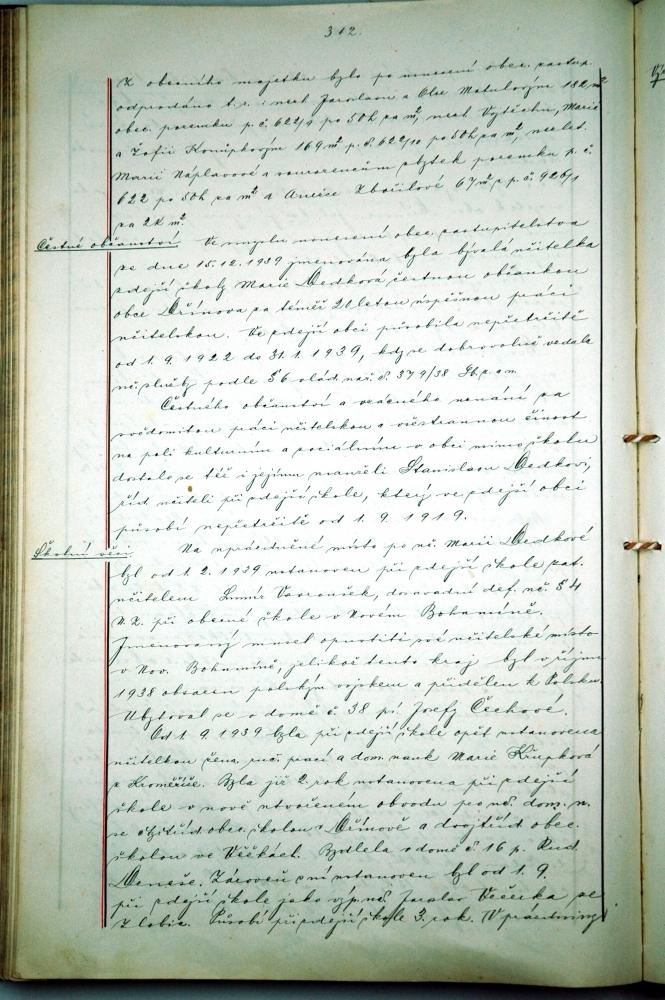 312.
Z obecního majetku bylo po usnesení obec. zastup.
odprodáno t. r. i nesl Jaroslavu a Olze Matulovým 182 m²
obec. pozemku p. č. 622/9 po 50 h za m², nesl Vojtěchu, Marii
a Žofii Konupkovým 169 m² p. č. 622/10 po 50 h za m²,
Marii Náplavové a sourozencům zbytek pozemku p. č.
622 po 50 h za m² a Anežce Zbořilové 67 m² z p. č. 926/1
za 2 K m².
Čestné občanství Ve smyslu usnesení obec. zastupitelstva
ze dne 15. 12. 1939 jmenována byla bývalá učitelka
zdejší školy Marie Dedková čestnou občankou
obce Střínova za téměř 20letou úspěšnou práci
učitelskou. Ve zdejší obci působila nepřetržitě
od 1. 9. 1922 do 31. 1. 1939, kdy se dobrovolně vzdala
uč. služby podle § 6 vlád. nař. č. 379/38 Sb. z. a n.
Čestného občanství a vzácného uznání za
svědomitou práci učitelskou a všestrannou činnost
na poli kulturním a sociálním v obci mimo školu
dostalo se též i jejímu manželi Stanislavu Dedkovi,
říd. učiteli při zdejší škole, který ve zdejší obci
působí nepřetržitě od 1. 9. 1919.
Školní věci Na uprázdněné místo po uč. Marii Dedkové
byl od 1. 2. 1939 ustanoven při zdejší škole zat.
učitelem Vavroušek, dosavadní def. uč. § 4
při obecné škole v Novém Bohumíně.
Jmenovaný musel opustiti své učitelské místo
v Nov. Bohumíně, jelikož tento kraj byl v říjnu
1938 obsazen polským vojskem a přidělen k Polsku.
Ubytoval se v domě č. 38 pí Josefy Čechové.
Od 1. 9. 1939 byla při zdejší škole opět ustanovena
učitelkou žen. ruč. prací a dom. nauk Marie Křupková
z Kroměříže. Byla již 2. rok ustanovena při zdejší
škole v nově utvořeném obvodu pro uč. dom. n.
se obec. školou v a dvojtříd. obec.
školou ve Věžkách. Bydlela v domě č. 16 p. Rud.
Zároveň s ní ustanoven byl od 1. 9.
při zdejší škole jako výp. uč. Jaroslav Večerka ze
Zlobic. Působí při zdejší škole 3. rok. V prázdniny